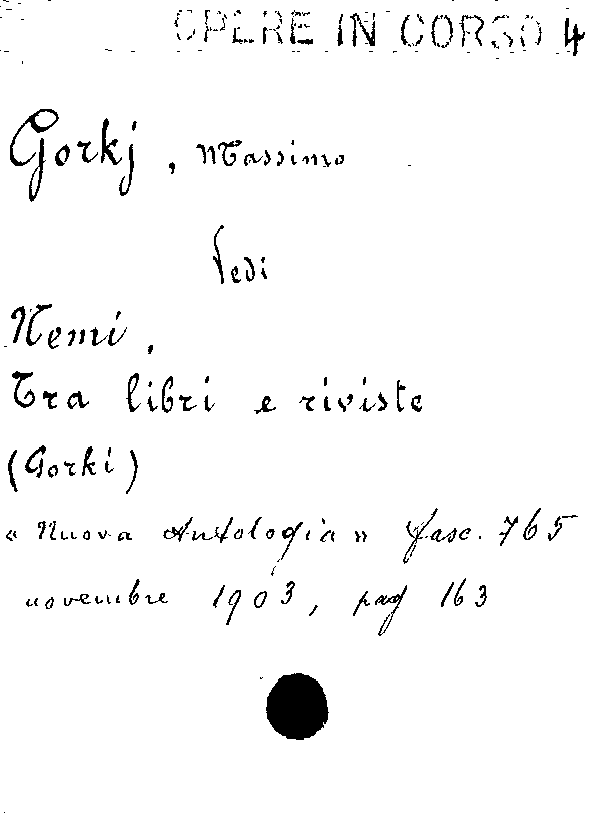 OPERE IN CORSO 4
Gorkj, Massimo
Vedi
Nemi.
Tra libri e riviste
(Gorki)
« Nuova Antologia » fasc. 765
novembre 1903, pag 163